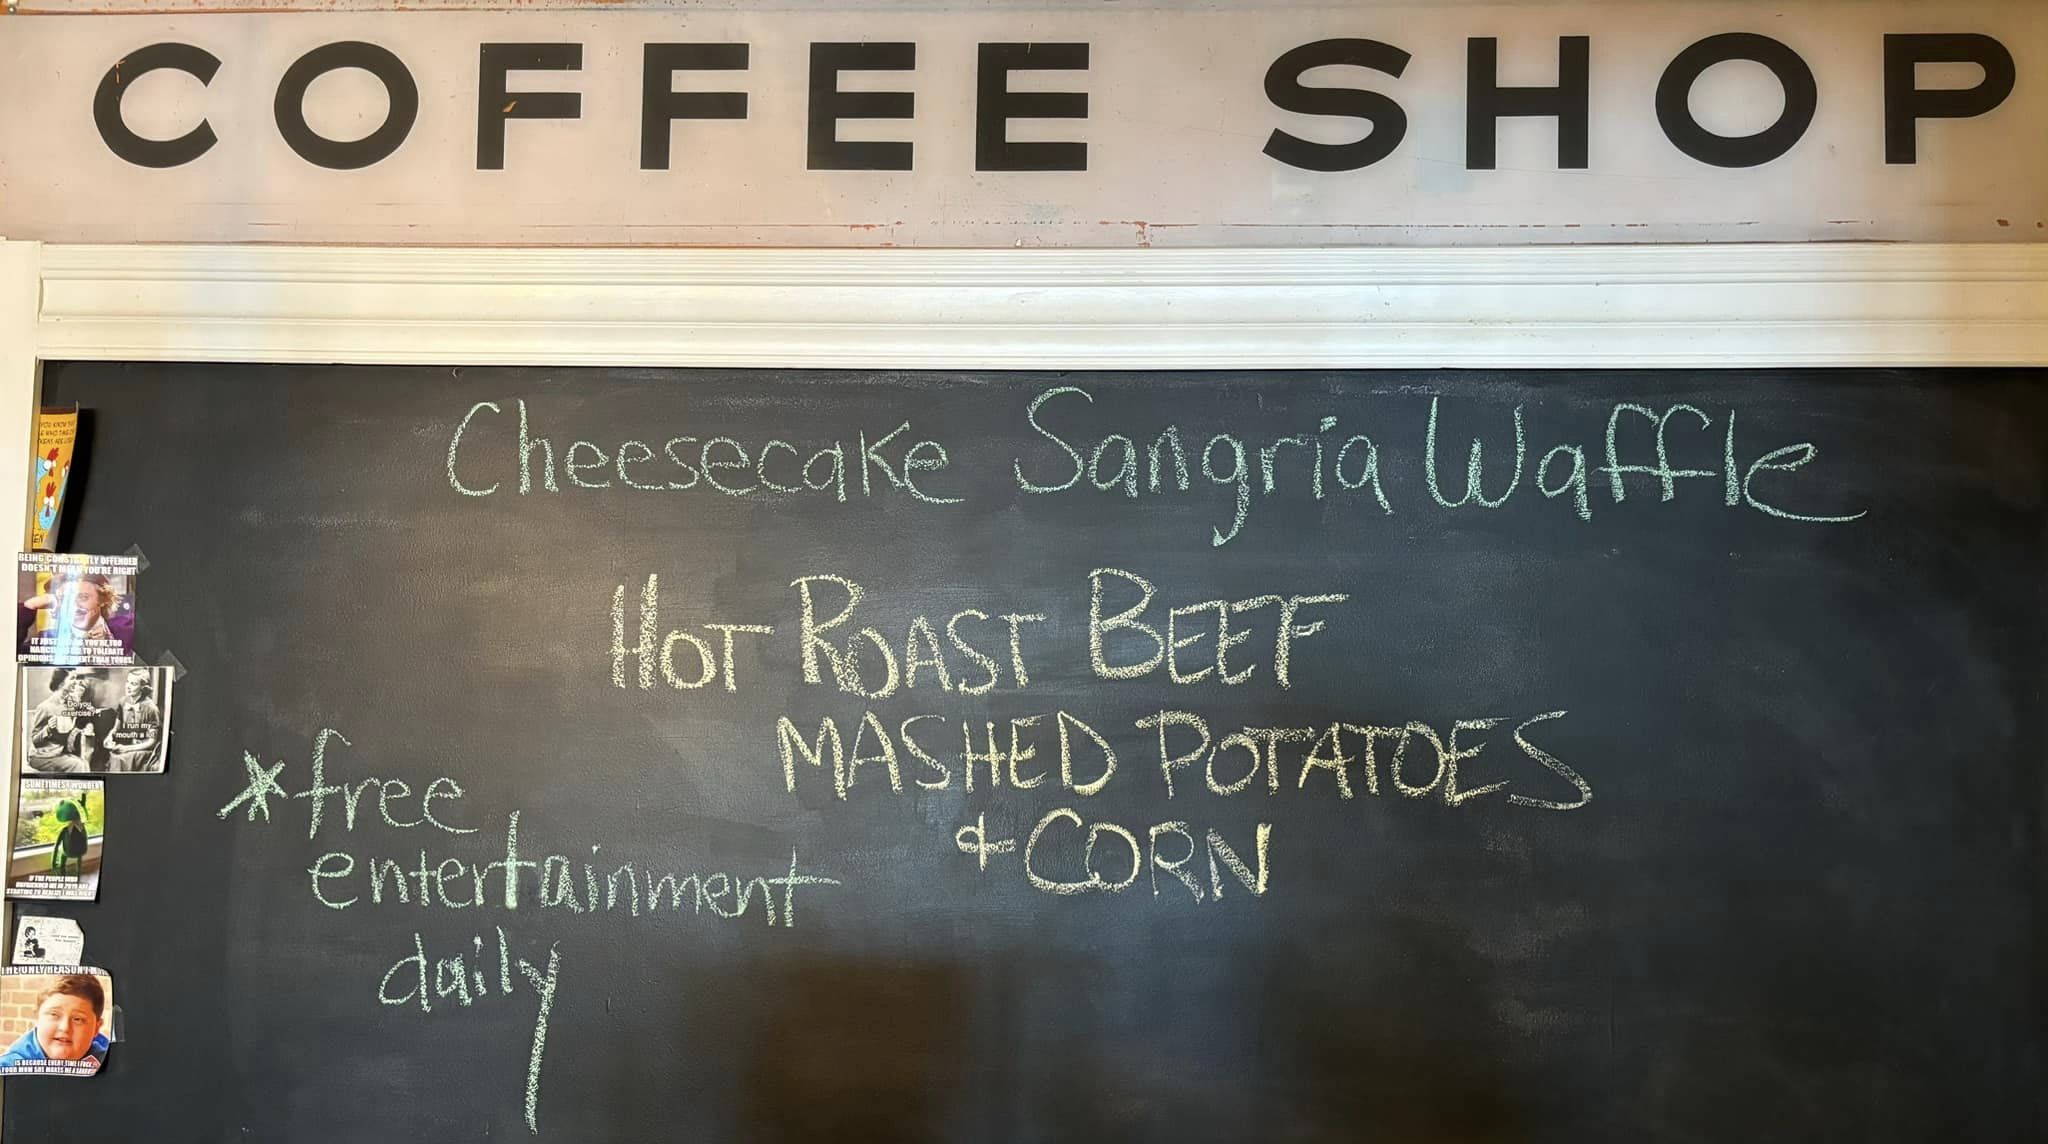 COFFEE SHOP
Cheesecake Sangria Waffle
HOT ROAST BEEF
MASHED POTATOES
& CORN
*free
entertainment
daily
BEING CONSTANTLY OFFENDED
DOESN'T MEAN YOU'RE RIGHT
IT JUST YOU'RE TOO
TO TOLERATE
OPINIONS THAN YOURS.
Do you
exercise?
I run my
mouth a lot
SOMETIMES I WONDER
IF THE PEOPLE WHO
STARTING TO REALIZE I WAS
THE ONLY REASON
IS BECAUSE EVERY TIME I
YOUR MOM SHE MAKES ME A